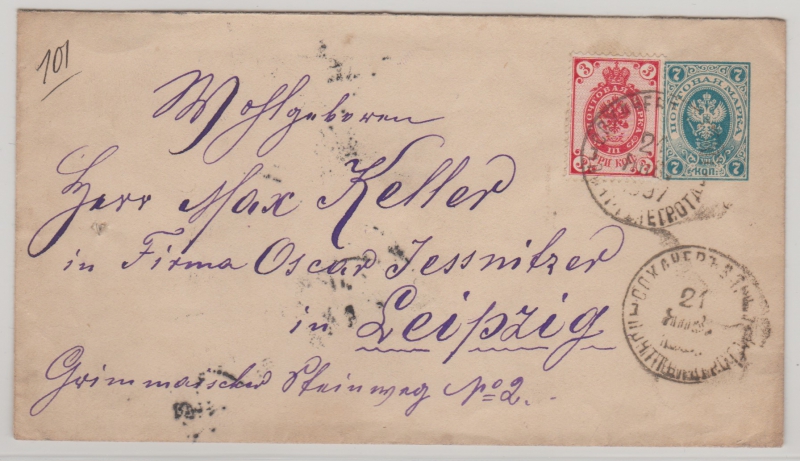 101
Wohlgeboren
Herr Max Keller
in Firma Oscar Jessnitzer
in Leipzig
Grimmaischer Steinweg No 2.
3 3
ПОЧТОВАЯ МАРКА
III
ТРИ КОП.
7 7
ПОЧТОВАЯ МАРКА
7 КОП: 7
21